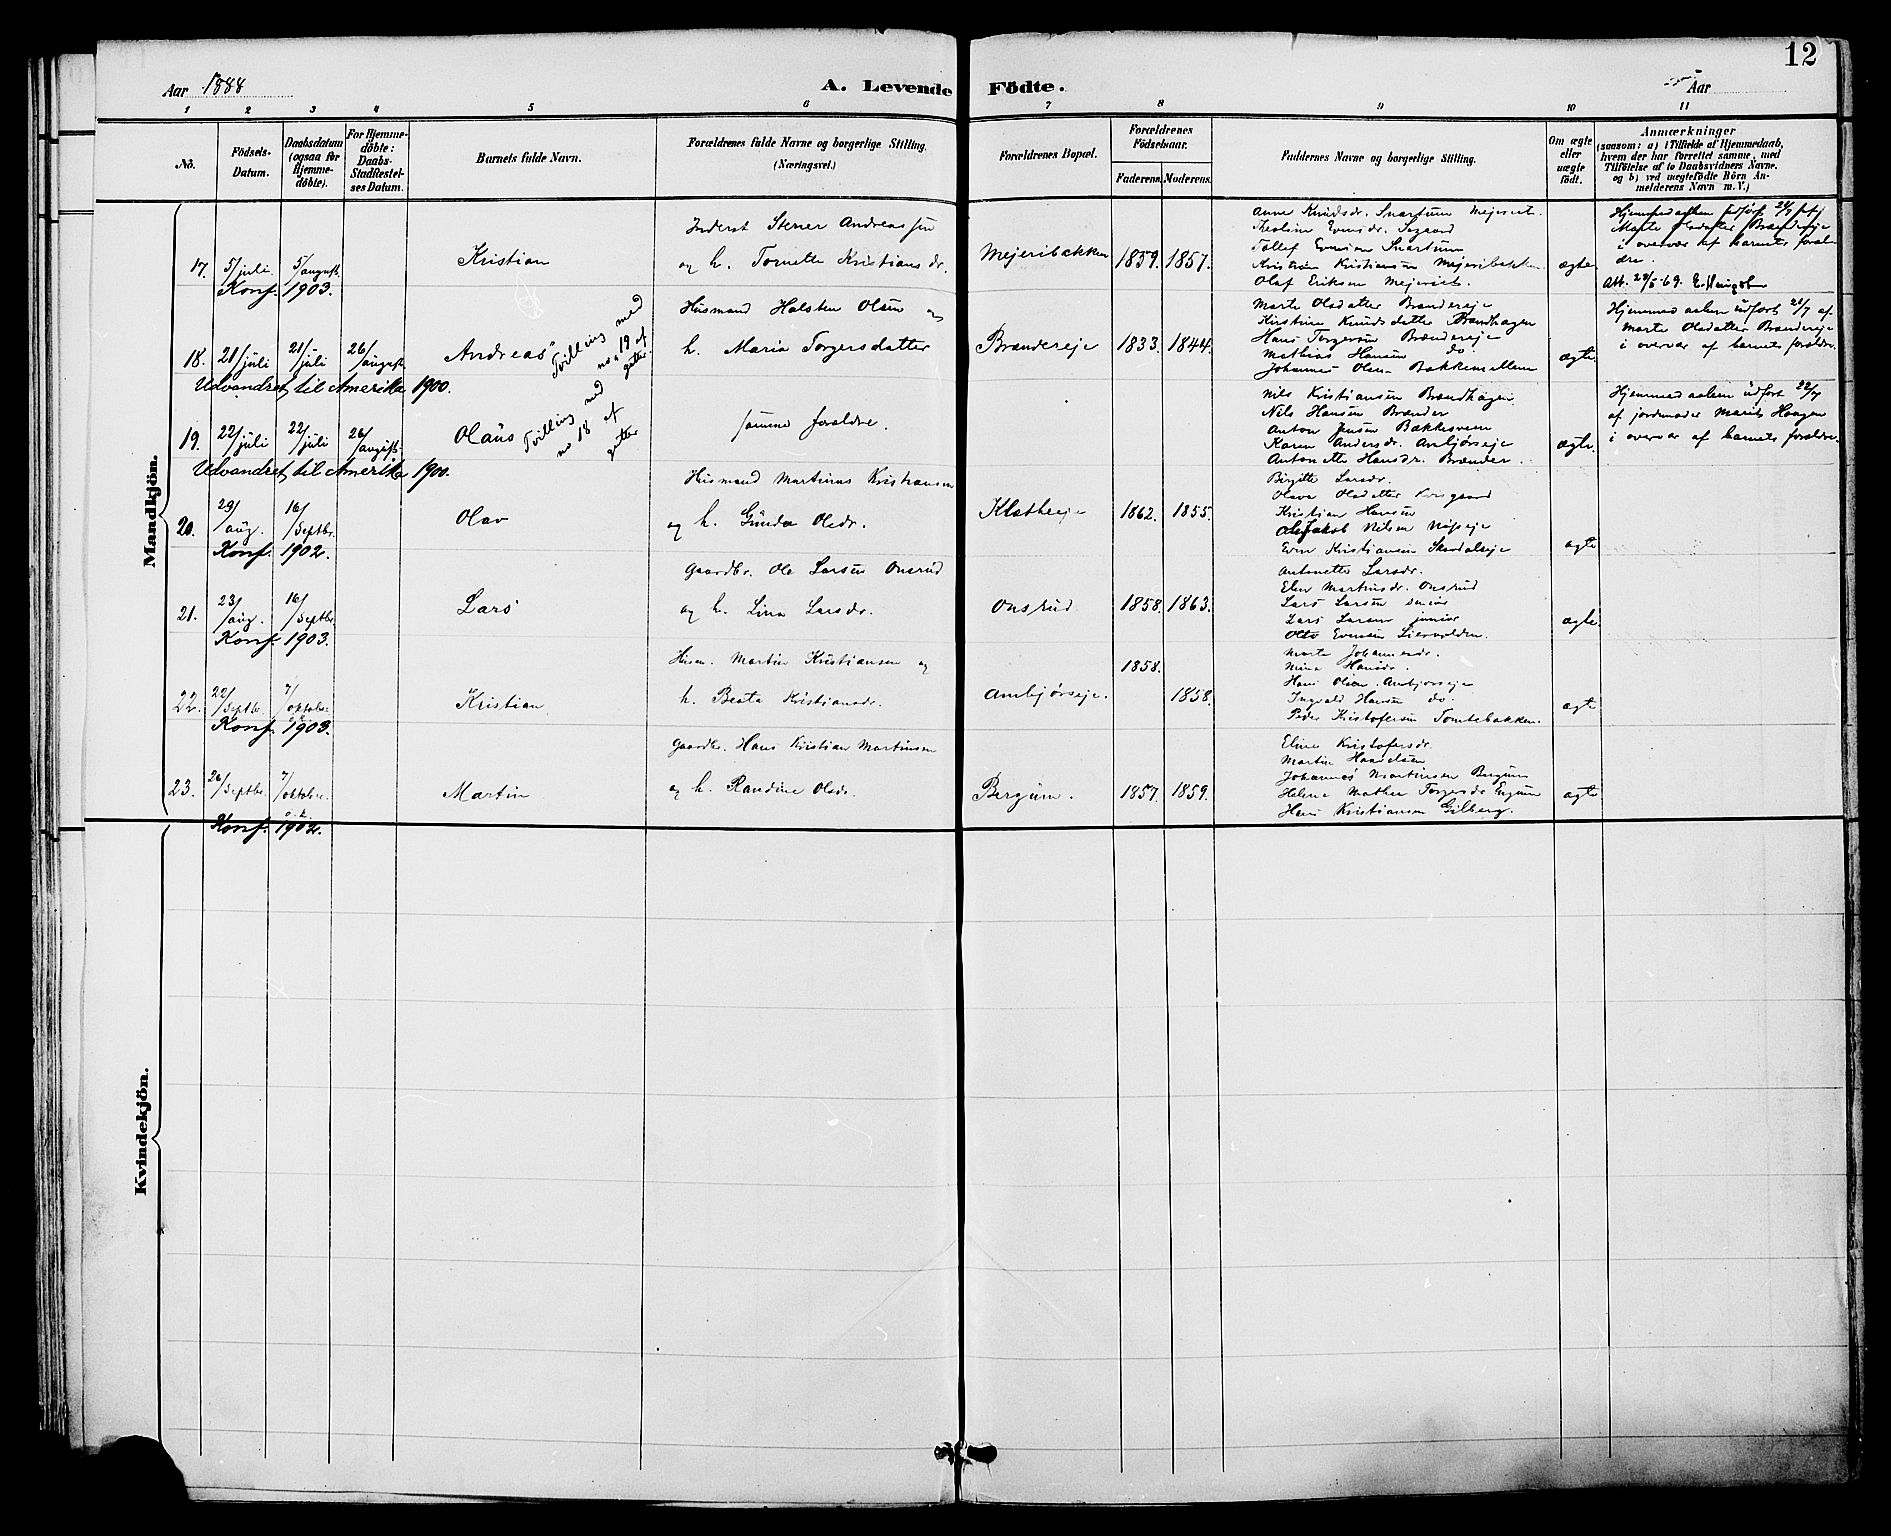 12
Aar 1888
A. Levende Födte.
Aar
1 2 3 4 5 6 7 8 9 10 11
No.
Födsels-Datum.
Daabsdatum (ogsaa for Hjemmedöbte).
For Hjemmedöbte: Daabs-Stadfestelses Datum.
Barnets fulde Navn.
Forældrenes fulde Navne og borgerlige Stilling. (Næringsvei.)
Forældrenes Bopæl.
Forældrenes Födselsaar.
Faderens. Moderens.
Faddernes Navne og borgerlige Stilling.
Om ægte eller uægte födt.
Anmærkninger
(saasom: a) i Tilfælde af Hjemmedaab,
hvem der har forrettet samme, med
Tilföielse af to Daabsvidners Navne.
og b) ved uægtefödte Börn Anmelderens Navn m. V.)
Mandkjön.
17. 5/juli 5/august. Kristian
Inderst Stener Andreassen
og h. Tornette Kristiansdr.
Mejeribakken 1859. 1857.
Anne Knudsdr. Snartum Mejeriet.
Evensdr.
Tollef Evensen Snartum
Kristian Kristiansen Mejeribakken
Olaf Eriksen Mejeriet.
ægte
Hjemmedaaben
Marte Olsdatter Brændereje
i overvær af barnets forældre.
Konf. 1903.
18. 21/juli 21/juli 26/august. Andreas
Tvilling med no 19 af gutter
Husmand Halsten Olsen og
h. Maria Torgersdatter
Brændereje 1833. 1844.
Marte Olsdatter Brændereje
Kirstine Knudsdatter Brændhagen
Hans Torgersen Brændereje
Mathias Hansen do
Johannes Olsen Bakkemellem
ægte
Hjemmedaaben udfört 21/7 af
Marte Olsdatter Brændereje
i overvær af barnets forældre.
Udvandret til Amerika 1900.
19. 22/juli 22/juli 26/august. Olaus
Tvilling med no 18 af gutter
samme forældre.
Nils Kristiansen Brændhagen
Nils Hansen Brænder
Anton Jensen Bakkesveen
Karen Andersdr. Ambjörseje
Antonette Hansdr. Brænder.
ægte.
Hjemmedaaben udfört 22/7
af jordmoder Marit Haagen
i overvær af barnets forældre.
Udvandret til Amerika 1900.
20. 29/aug. 16/Septbr. Olav
Husmand Martinus Kristiansen
og h. Gunda Olsdr.
Kladheje 1862. 1855.
Birgitte Larsdr.
Olava Olsdatter
Kristian Hansen
Jakob Nilsen
Even Kristiansen
ægte
Konf. 1902.
21. 23/aug. 16/Septbr. Lars
Gaardbr. Ole Larsen Onsrud
og h. Lina Larsdr.
Onsrud 1858. 1863.
Antonette Larsdr.
Elen Martinsdr. Onsrud
Lars Larsen senior
Lars Larsen junior
Evensen
ægte.
Konf. 1903.
22. 22/Septbr. 7/oktober Kristian
Husm. Martin Kristiansen og
h. Beata Kristiansdr.
Ambjörseje. 1858. 1858.
Marte Johannesdr.
Mina Hansdr.
Hans Olsen Ambjörseje
Ingvald Hansen do
Peder Kristofersen Tomtebakken.
ægte
Konf. 1903.
23. 26/Septbr. 7/oktober. Martin
Gaardbr. Hans Kristian Martinsen
og h. Randine Olsdr.
Bergum. 1857. 1859.
Eline Kristofersdr.
Martin
Johannes Martinsen Bergum
Helene Mathea Torgersdr.
Hans Kristiansen Gilberg.
ægte
Konf. 1902.
Kvindekjön.